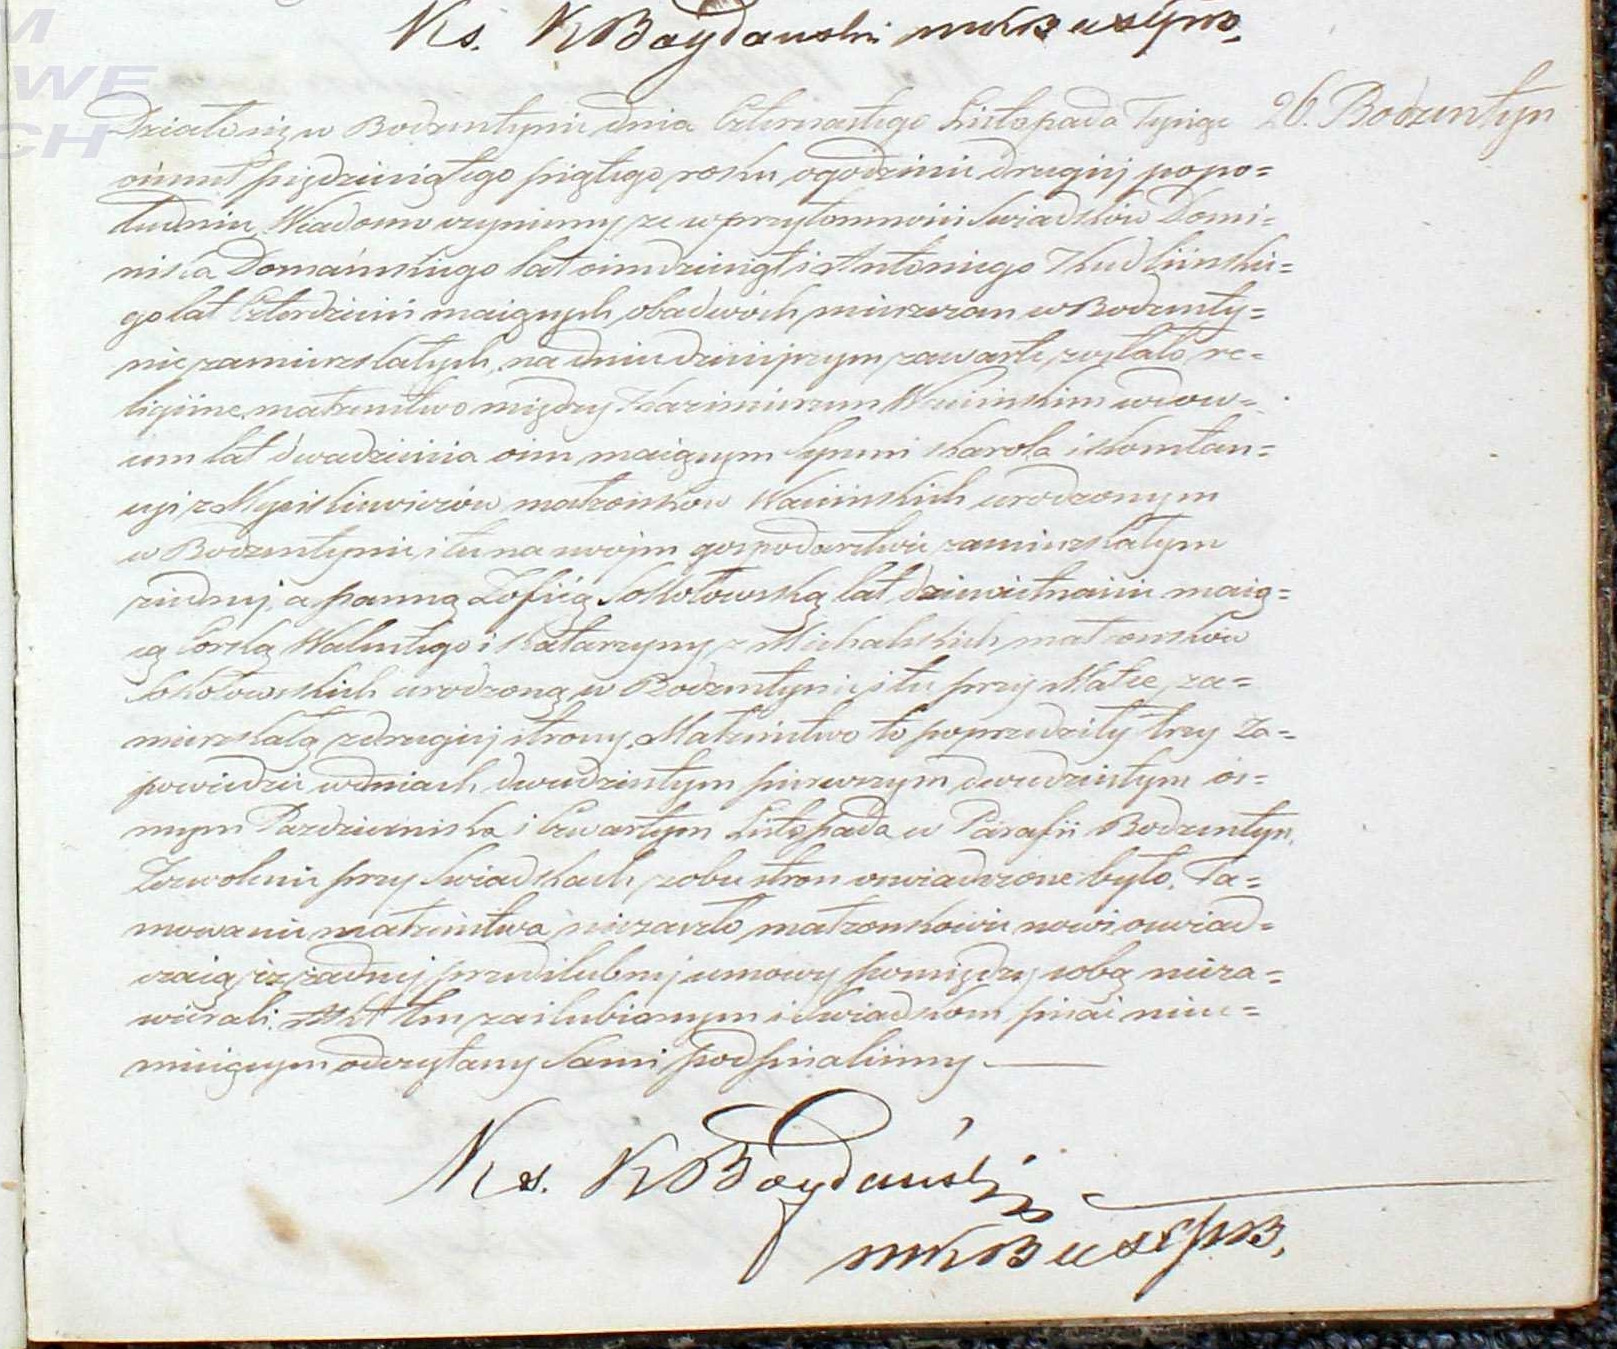 Ks. K Boydanski
WE
CH
26. Bodzentyn
Działo się w Bodzentynie dnia Czternastego Listopada Tysiąc
ośmset pięćdziesiątego piątego roku o godzinie drugiej popo=
łudniu, Wiadomo czyniemy że w przytomności Świadków Domi=
nika Domańskiego lat ośmdziesiąt i Antoniego
go lat Czterdzieści maiących, obadwóch mieszczan w Bodzenty=
nie zamieszkałych, na dniu dzisiejszym zawarte zostało re=
ligijne małżeństwo między Kazimierzem Kamińskim wdow=
cem lat dwadzieścia ośm maiącym Synem Karola i Konstan=
cyi z małżonków Kamińskich urodzonym
w Bodzentynie i tu na swojm gospodarstwie zamieszkałym
z iednej, a panną Zofiią Sokołowską lat dziewietnaście maią=
cą Corką Walentego i Katarzyny z Michalskich małżonków
Sokołowskich urodzoną w Bodzentynie i tu przy Matce za=
mieszkałą z drugiej strony. Małżeństwo to poprzedziły trzy Za=
powiedzie w dniach dwudziestym pierwszym dwudziestym ós=
mym Pazdziernika i Czwartym Listopada w Parafii Bodzentyn,
Zezwolenie przy Swiadkach z obu stron oswiadczone było. Ta=
mowanie małżeństwa niezaszło, małżonkowie nowi oswiad=
czaią iż żadnej przedślubnej umowy pomiędzy sobą nieza=
wierali. Akt ten zaślubionym i Swiadkom pisać nieu=
mieiącym odczytany Sami podpisaliśmy.
Ks. K Boydański